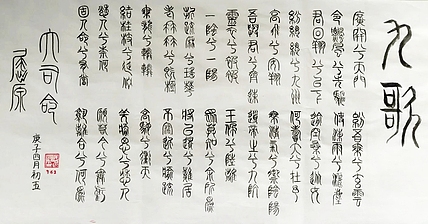 九歌
廣開兮天門 紛吾乘兮玄雲
令飄風兮先驅 使涷雨兮灑塵
君回翔兮以下 踰空桑兮從女
紛總總兮九州 何壽夭兮在予
高飛兮安翔 乘清氣兮御陰陽
吾與君兮齋速 導帝之兮九阬
靈衣兮被被 玉佩兮陸離
一陰兮一陽 眾莫知兮余所為
折疏麻兮瑤華 將以遺兮離居
老冉冉兮既極 不寖近兮愈疏
乘龍兮轔轔 高駝兮沖天
結桂枝兮延佇 羌愈思兮愁人
愁人兮奈何 願若今兮無虧
固人命兮有當 孰離合兮可為
大司命
屈原
庚子四月初五